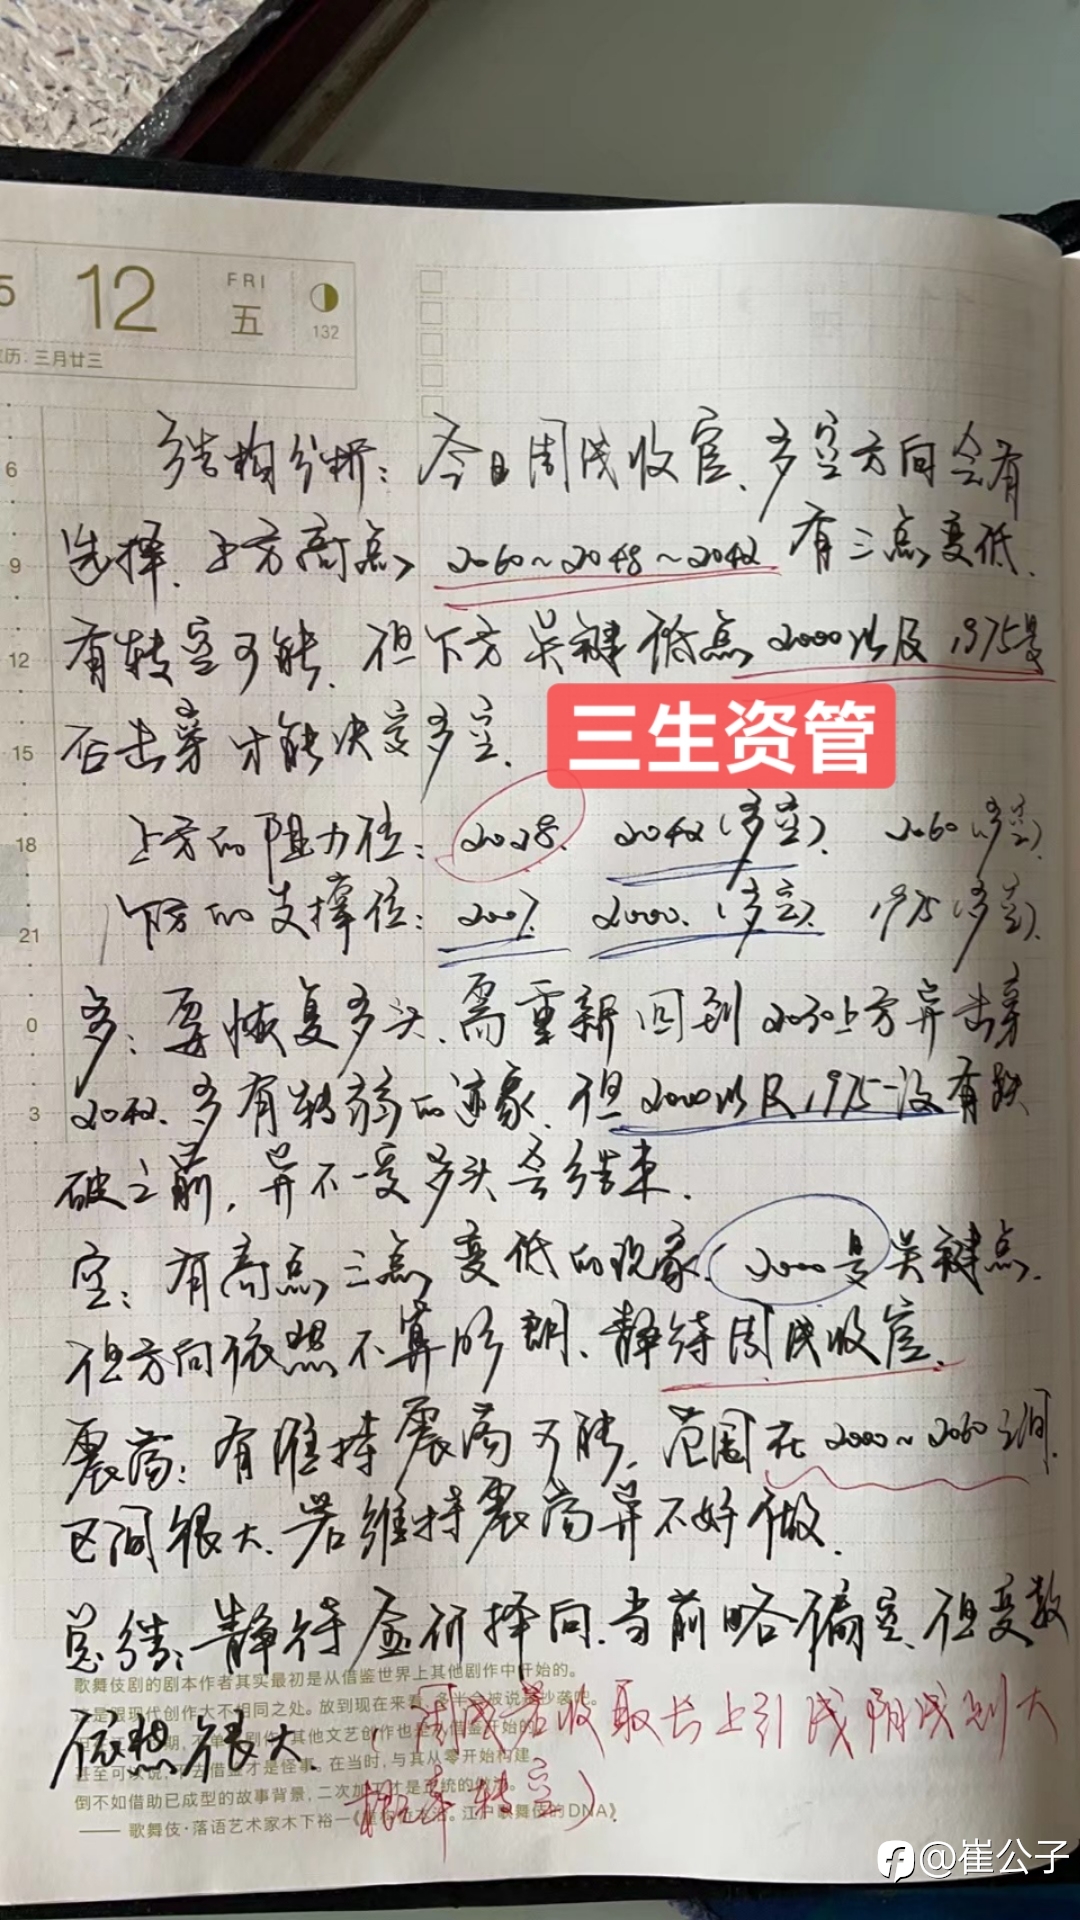 5 12 FRI 五 132
历: 三月廿三
结构分析: 今日周线收官、多空方向会有
6
选择、上方高点 2060~2048~2042 有三点变低、
9
有转空可能、但下方关键低点 2000以及1975是
12
否击穿才能决定多空、
15
三生资管
上方的阻力位: 2028、 2042(多空)、 2060(多空)、
18
下方的支撑位: 2007、 2000、(多空)、 1975(多空)、
21
多: 要恢复多头、需重新回到2030上方并击穿
0
2042、多有转弱的迹象、但2000以及1975没有跌
3
破之前, 并不一定多头会结束、
空: 有高点三点变低的现象、2000是关键点、
但方向依然不算明朗、静待周线收官、
震荡: 有维持震荡可能、范围在2000~2060之间、
区间很大、若维持震荡并不好做、
总结: 静待金价择向、当前略偏空、但变数
依然很大
(周线若收取长上引线阴线则大
概率转空)
歌舞伎剧的剧本作者其实最初是从借鉴世界上其他剧作中开始的。
是跟现代创作大不相同之处。放到现在来看,多半会被说是抄袭吧。
期,不单 剧作 其他文艺创作也是 借鉴开始的
甚至可以说, 去借鉴才是怪事。在当时,与其从零开始构建,
倒不如借助已成型的故事背景,二次加工才是正统的做法。
—— 歌舞伎·落语艺术家木下裕一《 江户歌舞伎的DNA》
@崔公子